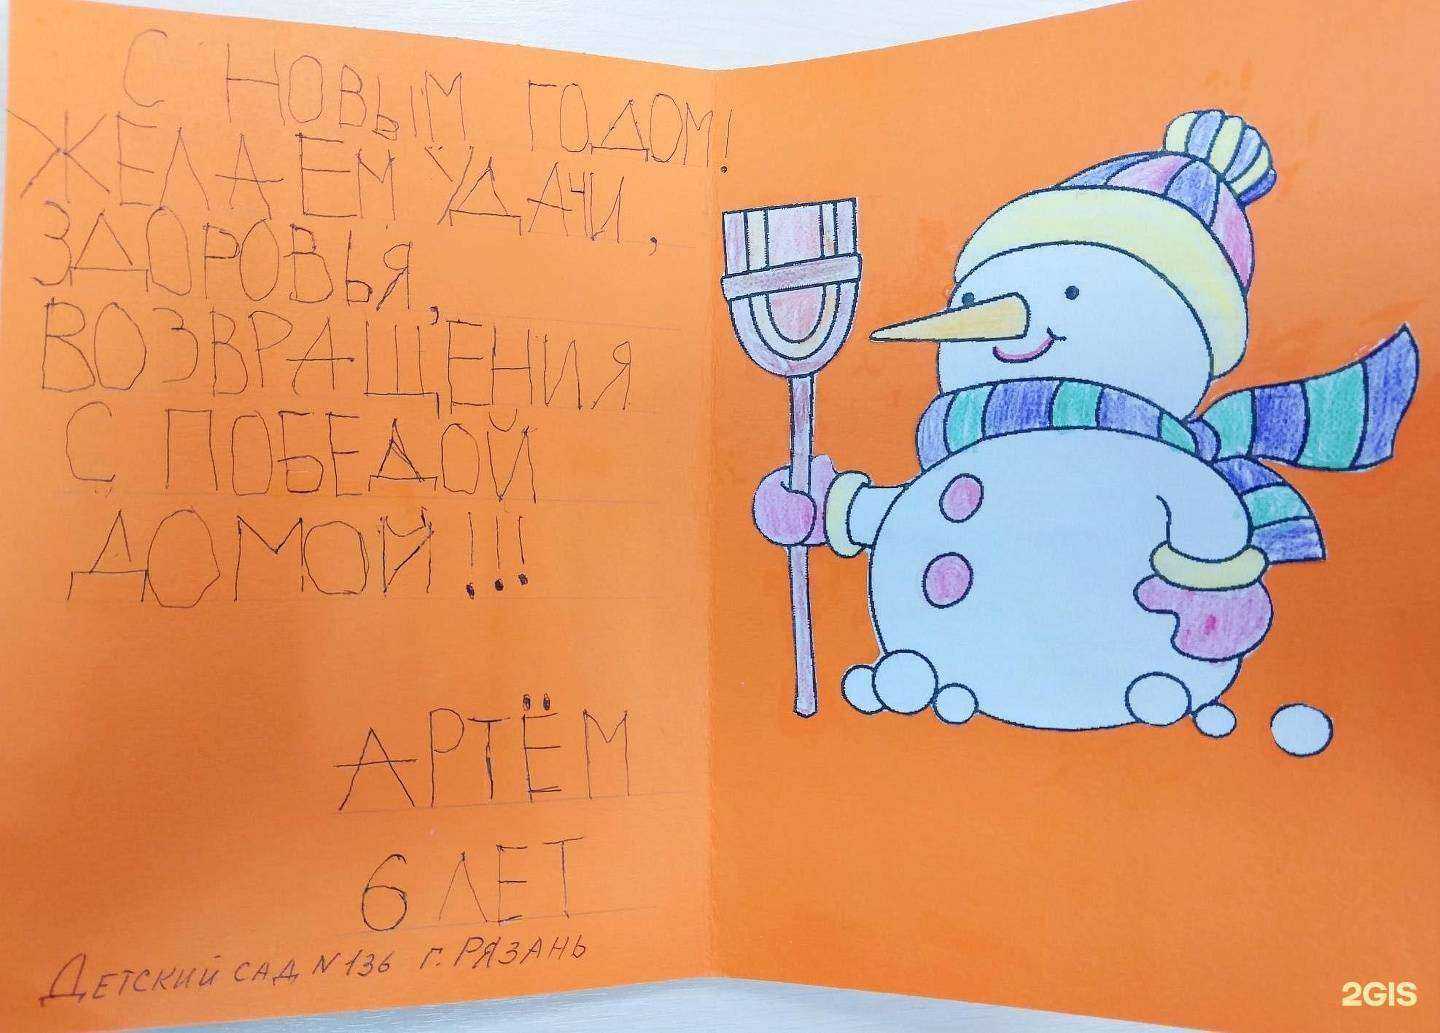 С НОВЫМ ГОДОМ!
ЖЕЛАЕМ УДАЧИ,
ЗДОРОВЬЯ,
ВОЗВРАЩЕНИЯ
С ПОБЕДОЙ
ДОМОЙ!!!
АРТЁМ
6 ЛЕТ
ДЕТСКИЙ САД N136 Г. РЯЗАНЬ
2GIS